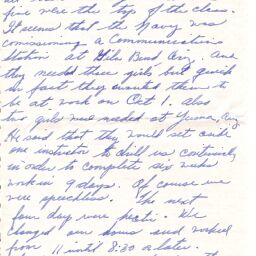 five were the top of the class.
It seems that the Navy was
comissioning a Communications
Station at Gila Bend, Ariz. And
they needed three girls but quick
in fact they wanted them to
be at work on Oct 1. Also
two girls were needed at Yuma, Ariz
He said that they would set aside
one instructor to drill us continously
in order to complete six weeks
work in 9 days. Of course we
were speechless. The next
four day were hectic. We
changed our hours and worked
from 11 until 8:30 or later.